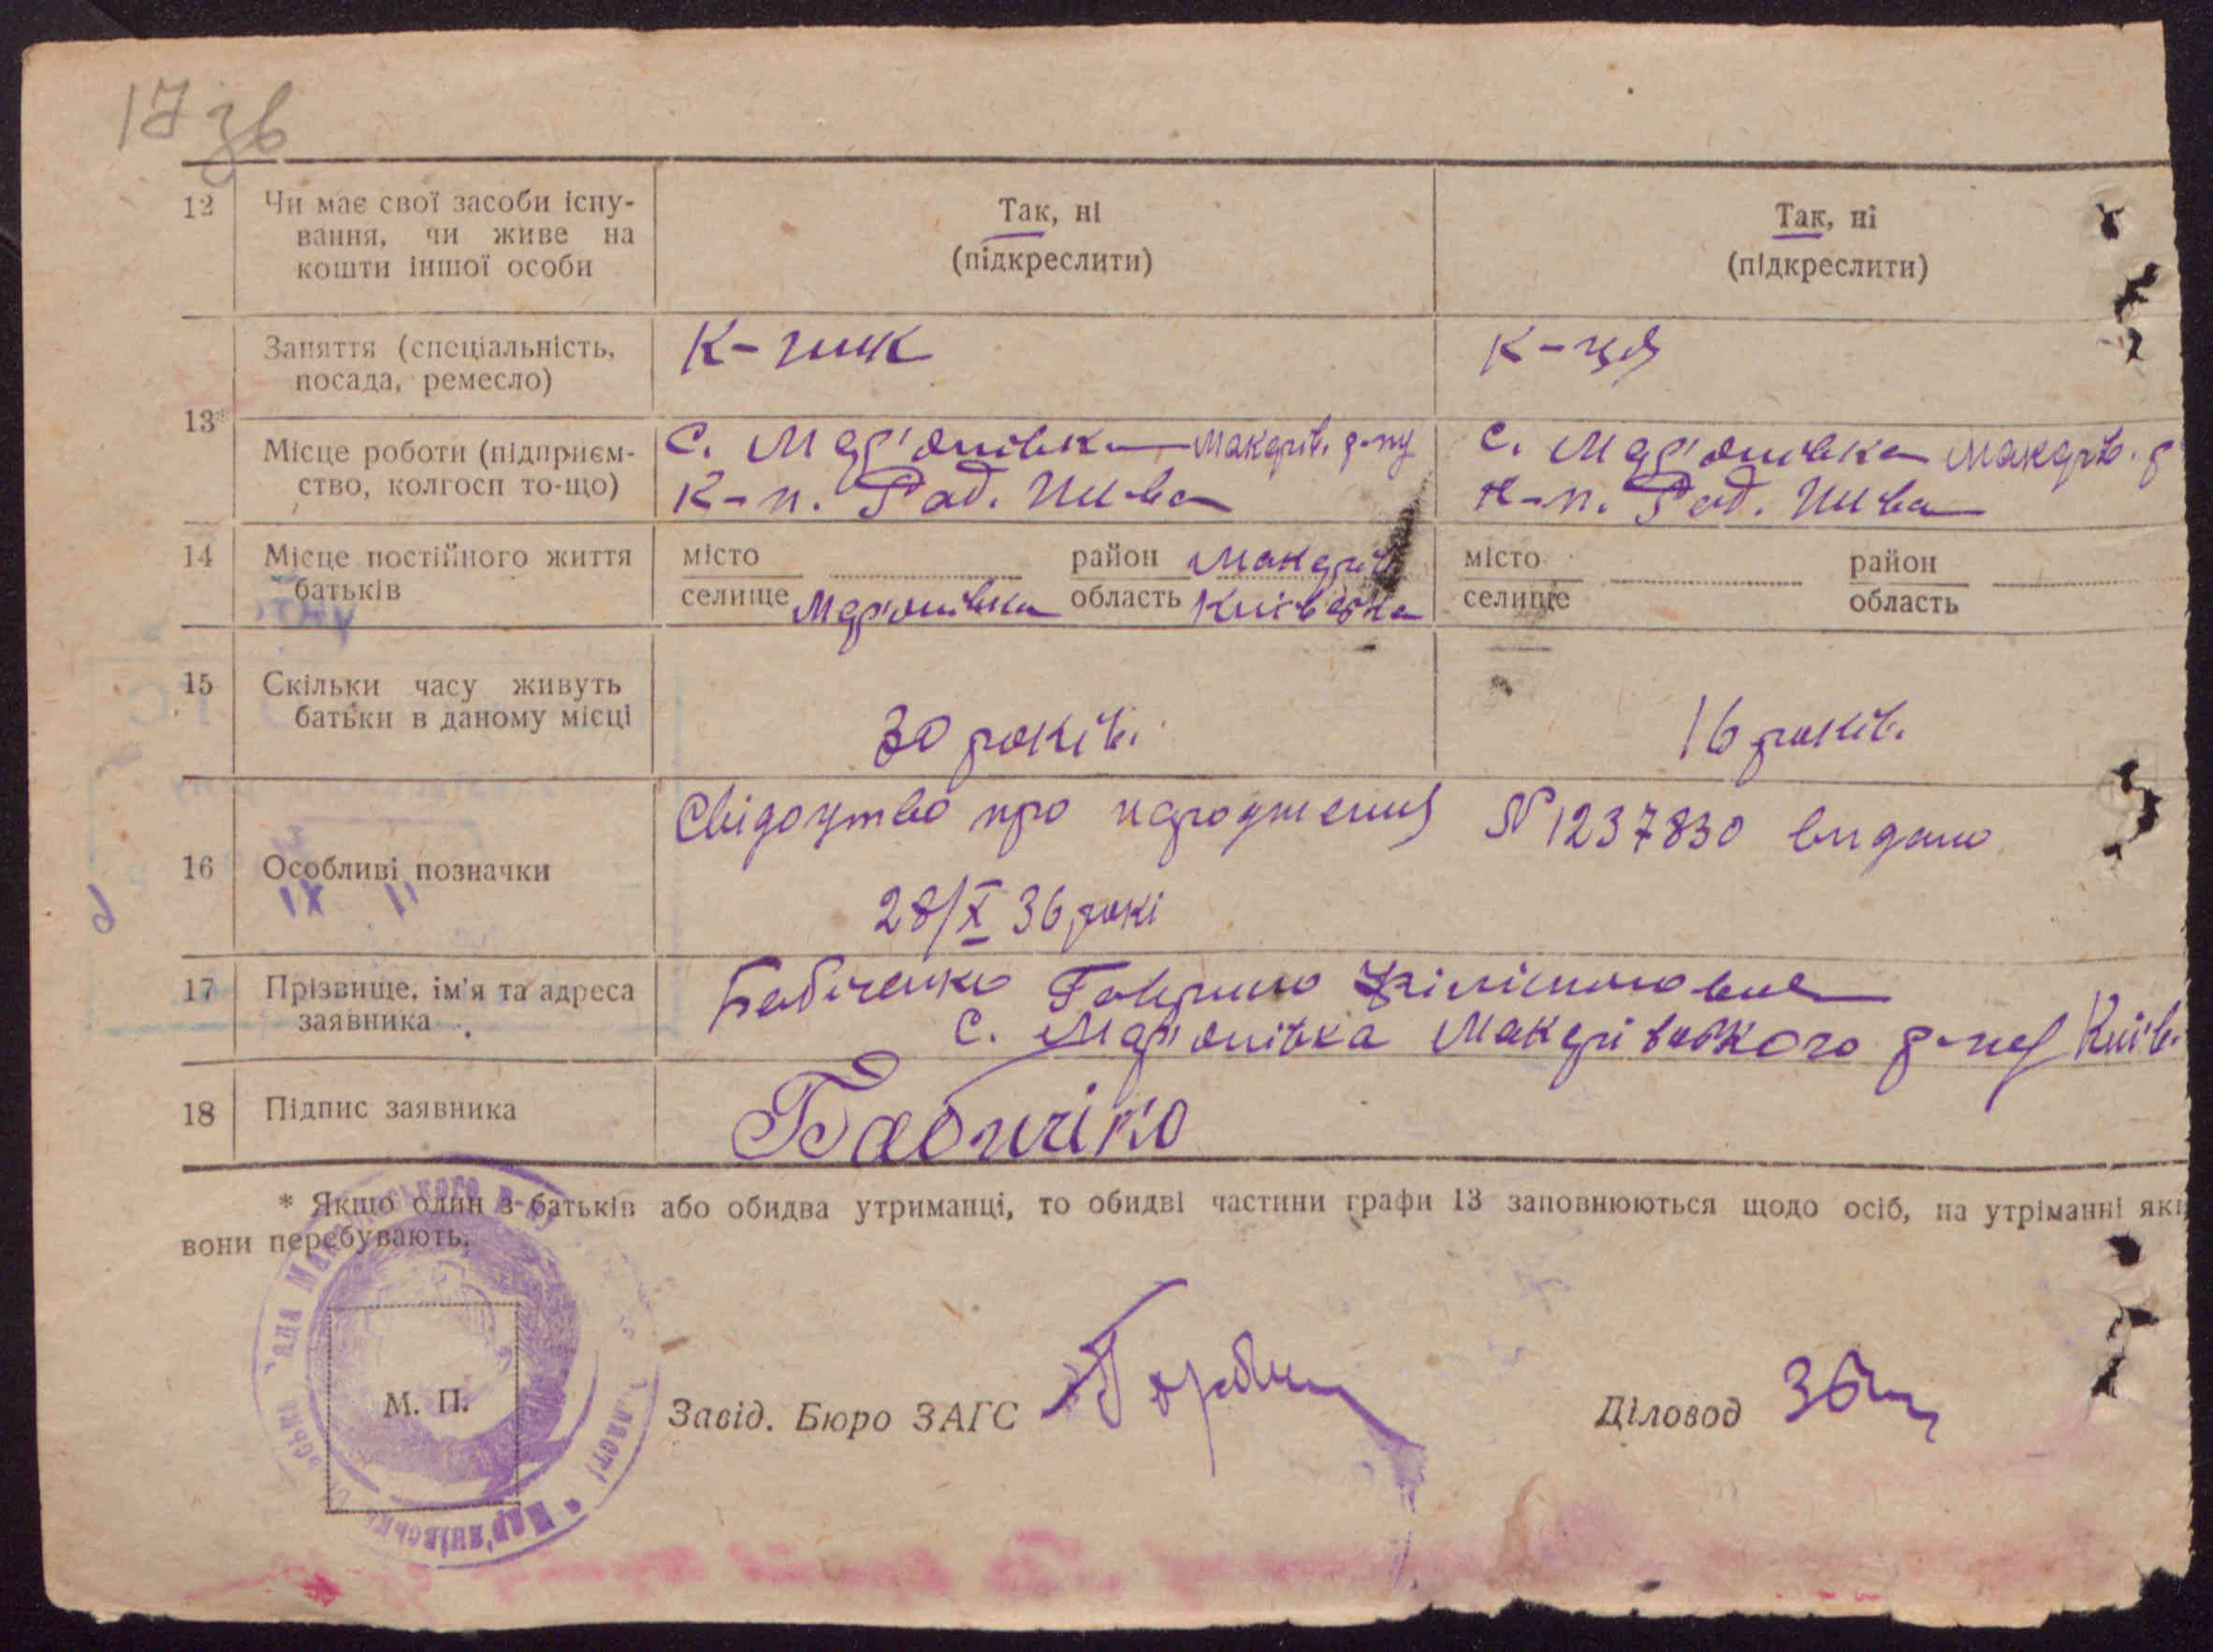 17 зв
12 Чи має свої засоби існу- Так, ні Так, ні
вання, чи живе на (підкреслити) (підкреслити)
кошти іншої особи
Заняття (спеціальність, К-ник К-ця
посада, ремесло)
13*
Місце роботи (підприєм- с. Мар'янівка Макарів. р-ну с. Мар'янівка Макарів. р
ство, колгосп то-що) К-п. Рад. Нива К-п. Рад. Нива
14 Місце постійного життя місто район Макарів місто район
батьків селище Мар'янівка область Київська селище область
15 Скільки часу живуть
батьки в даному місці 30 років. 16 років.
Свідоцтво про народження № 1237830 видано
16 Особливі позначки
28/X 36 рокі
17 Прізвище, ім'я та адреса Бабіченко Гаврило
заявника с. Мар'янівка Макарівського р-ну Київ.
18 Підпис заявника Бабичіко
* Якщо один з батьків або обидва утриманці, то обидві частини графи 13 заповнюються щодо осіб, на утріманні яки
вони перебувають.
М. П.
Завід. Бюро ЗАГС Діловод